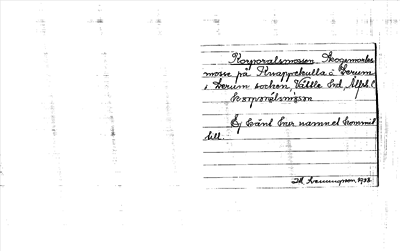 Korporalsmossen Skogsmarks
mosse på Knappekulla i Lerum
i Lerum socken, Vättle hd, Älfsb. l
Korporålsmosen
Ej känt hur namnet kommit
till.
1933